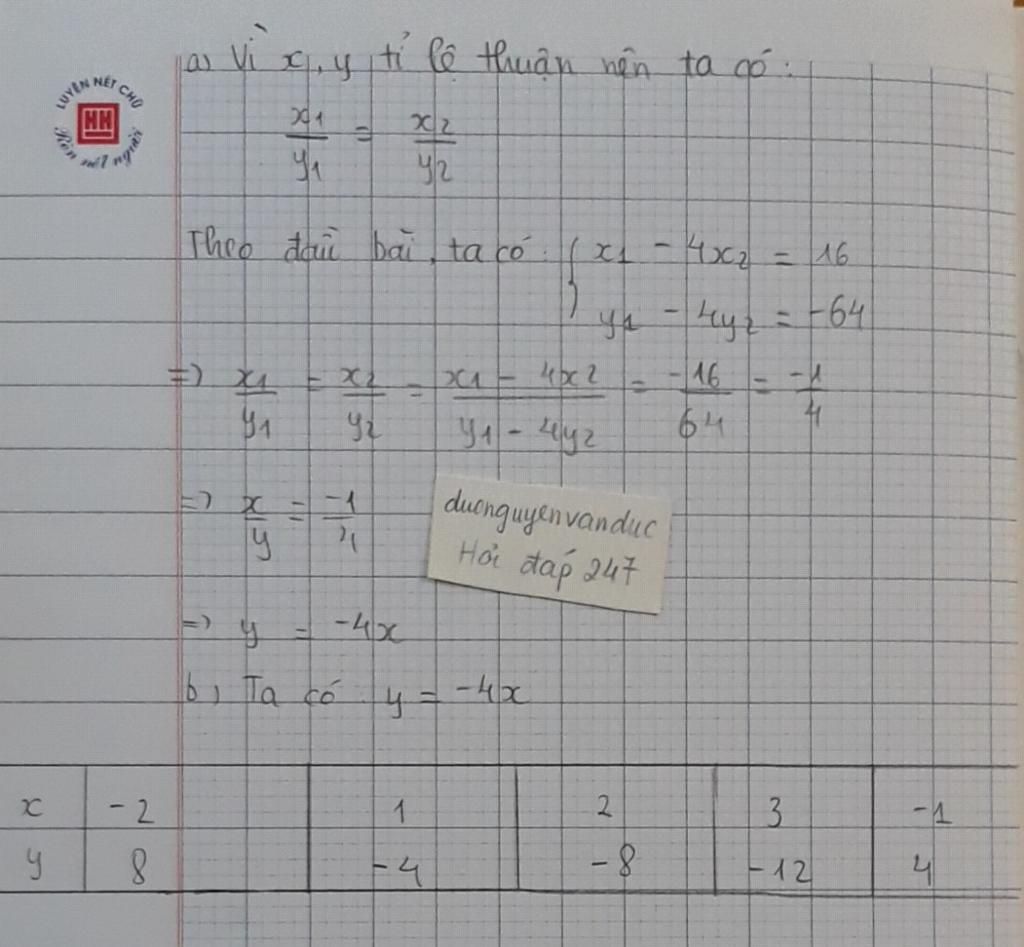 LUYỆN NÉT CHỮ
HH
Rèn nết người
a) Vì x, y tỉ lệ thuận nên ta có:
x1/y1 = x2/y2
Theo đầu bài, ta có: { x1 - 4x2 = 16
y1 - 4y2 = -64
=> x1/y1 = x2/y2 = x1 - 4x2 / y1 - 4y2 = -16/64 = -1/4
=> x/y = -1/4
ducnguyenvanduc
Hỏi đáp 247
=> y = -4x
b) Ta có: y = -4x
x -2 1 2 3 -1
y 8 -4 -8 -12 4